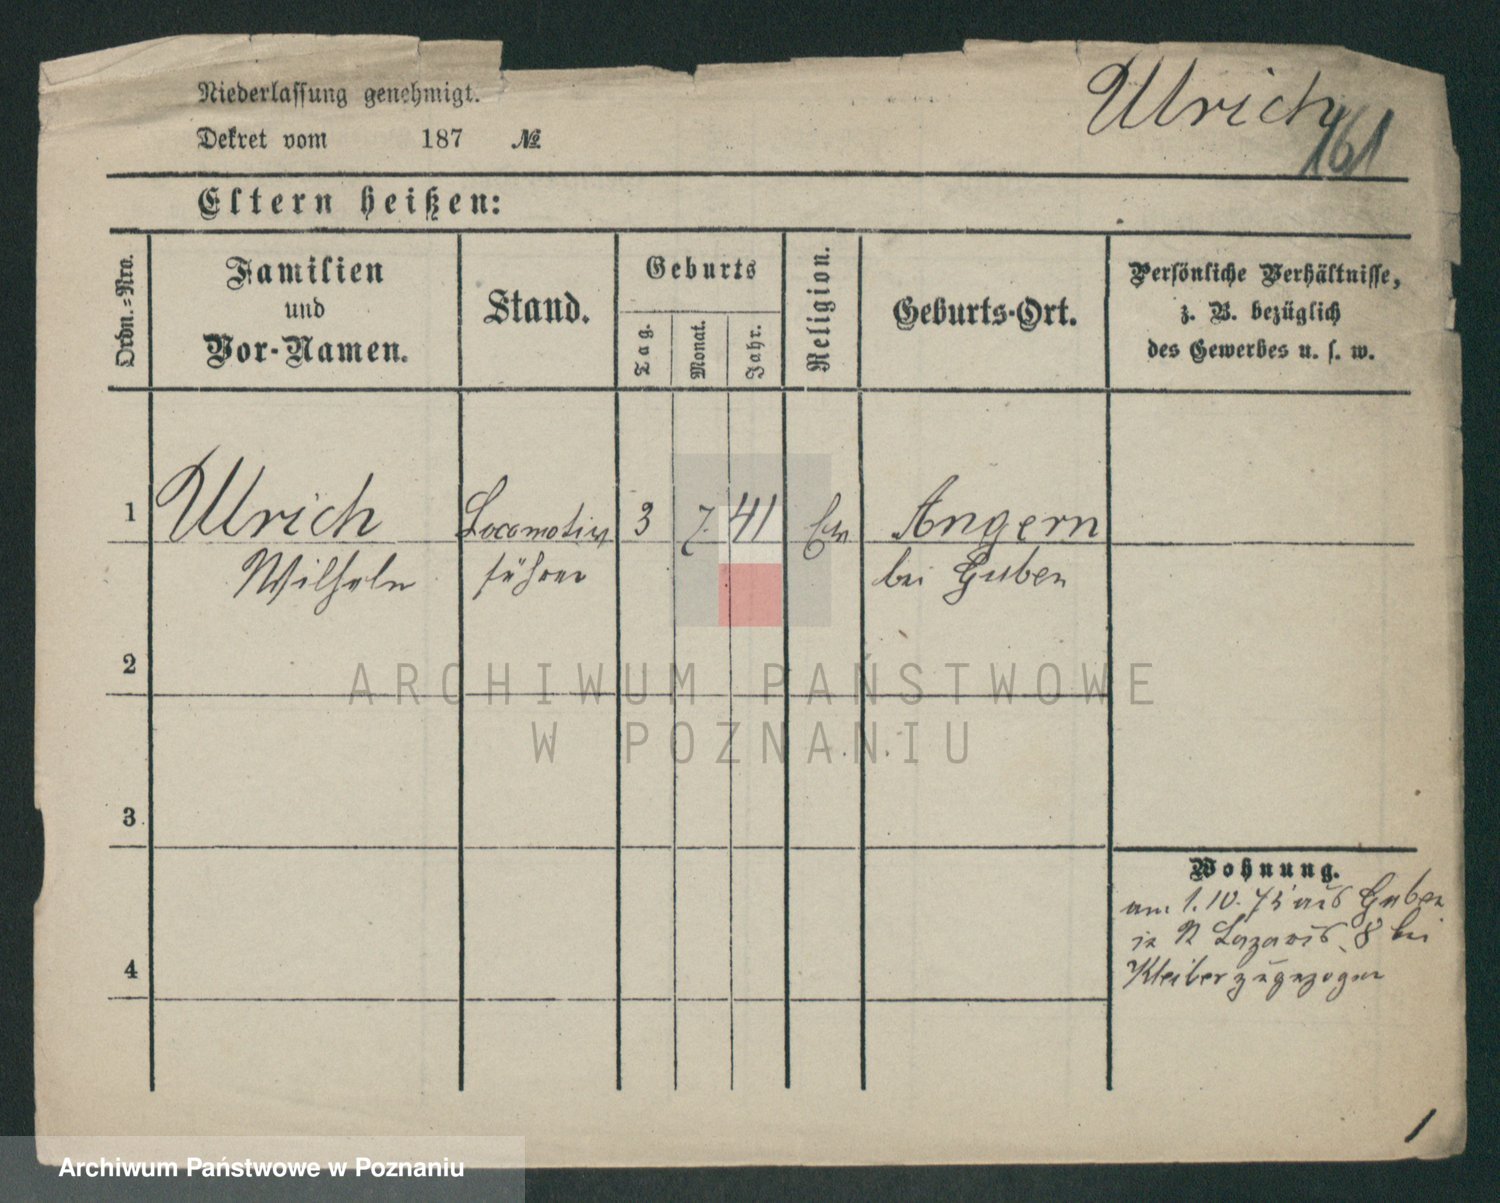 Niederlassung genehmigt.
Dekret vom 187 №
Ulrich
161
Eltern heißen:
Ordn.=Nro.
Familien
und
Vor-Namen.
Stand.
Geburts
Tag.
Monat.
Jahr.
Religion.
Geburts-Ort.
Persönliche Verhältnisse,
z. B. bezüglich
des Gewerbes u. s. w.
1 Ulrich Locomotiv 3 7. 41 Ev Angern
Wilhelm führer bei Guben
2
3
4
Wohnung.
am 1.10.75 aus Guben
in St Lazarus 8 bei
Kleiber zugezogen
1
ARCHIWUM PAŃSTWOWE
W POZNANIU
Archiwum Państwowe w Poznaniu